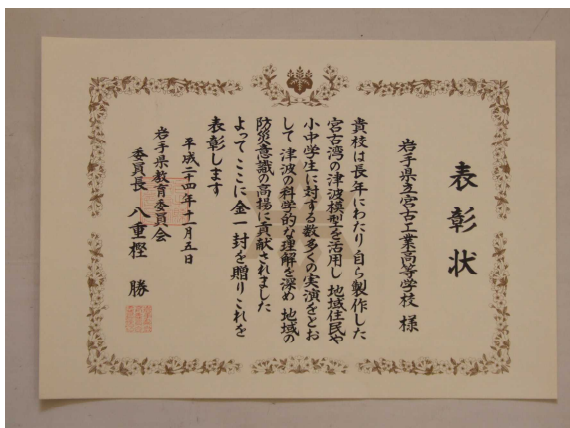 表彰状
岩手県立宮古工業高等学校 様
貴校は長年にわたり自ら製作した
宮古湾の津波模型を活用し 地域住民や
小中学生に対する数多くの実演をとお
して 津波の科学的な理解を深め 地域の
防災意識の高揚に貢献されました
よってここに金一封を贈りこれを
表彰します
平成二十四年十一月五日
岩手県教育委員会
委員長 八重樫 勝